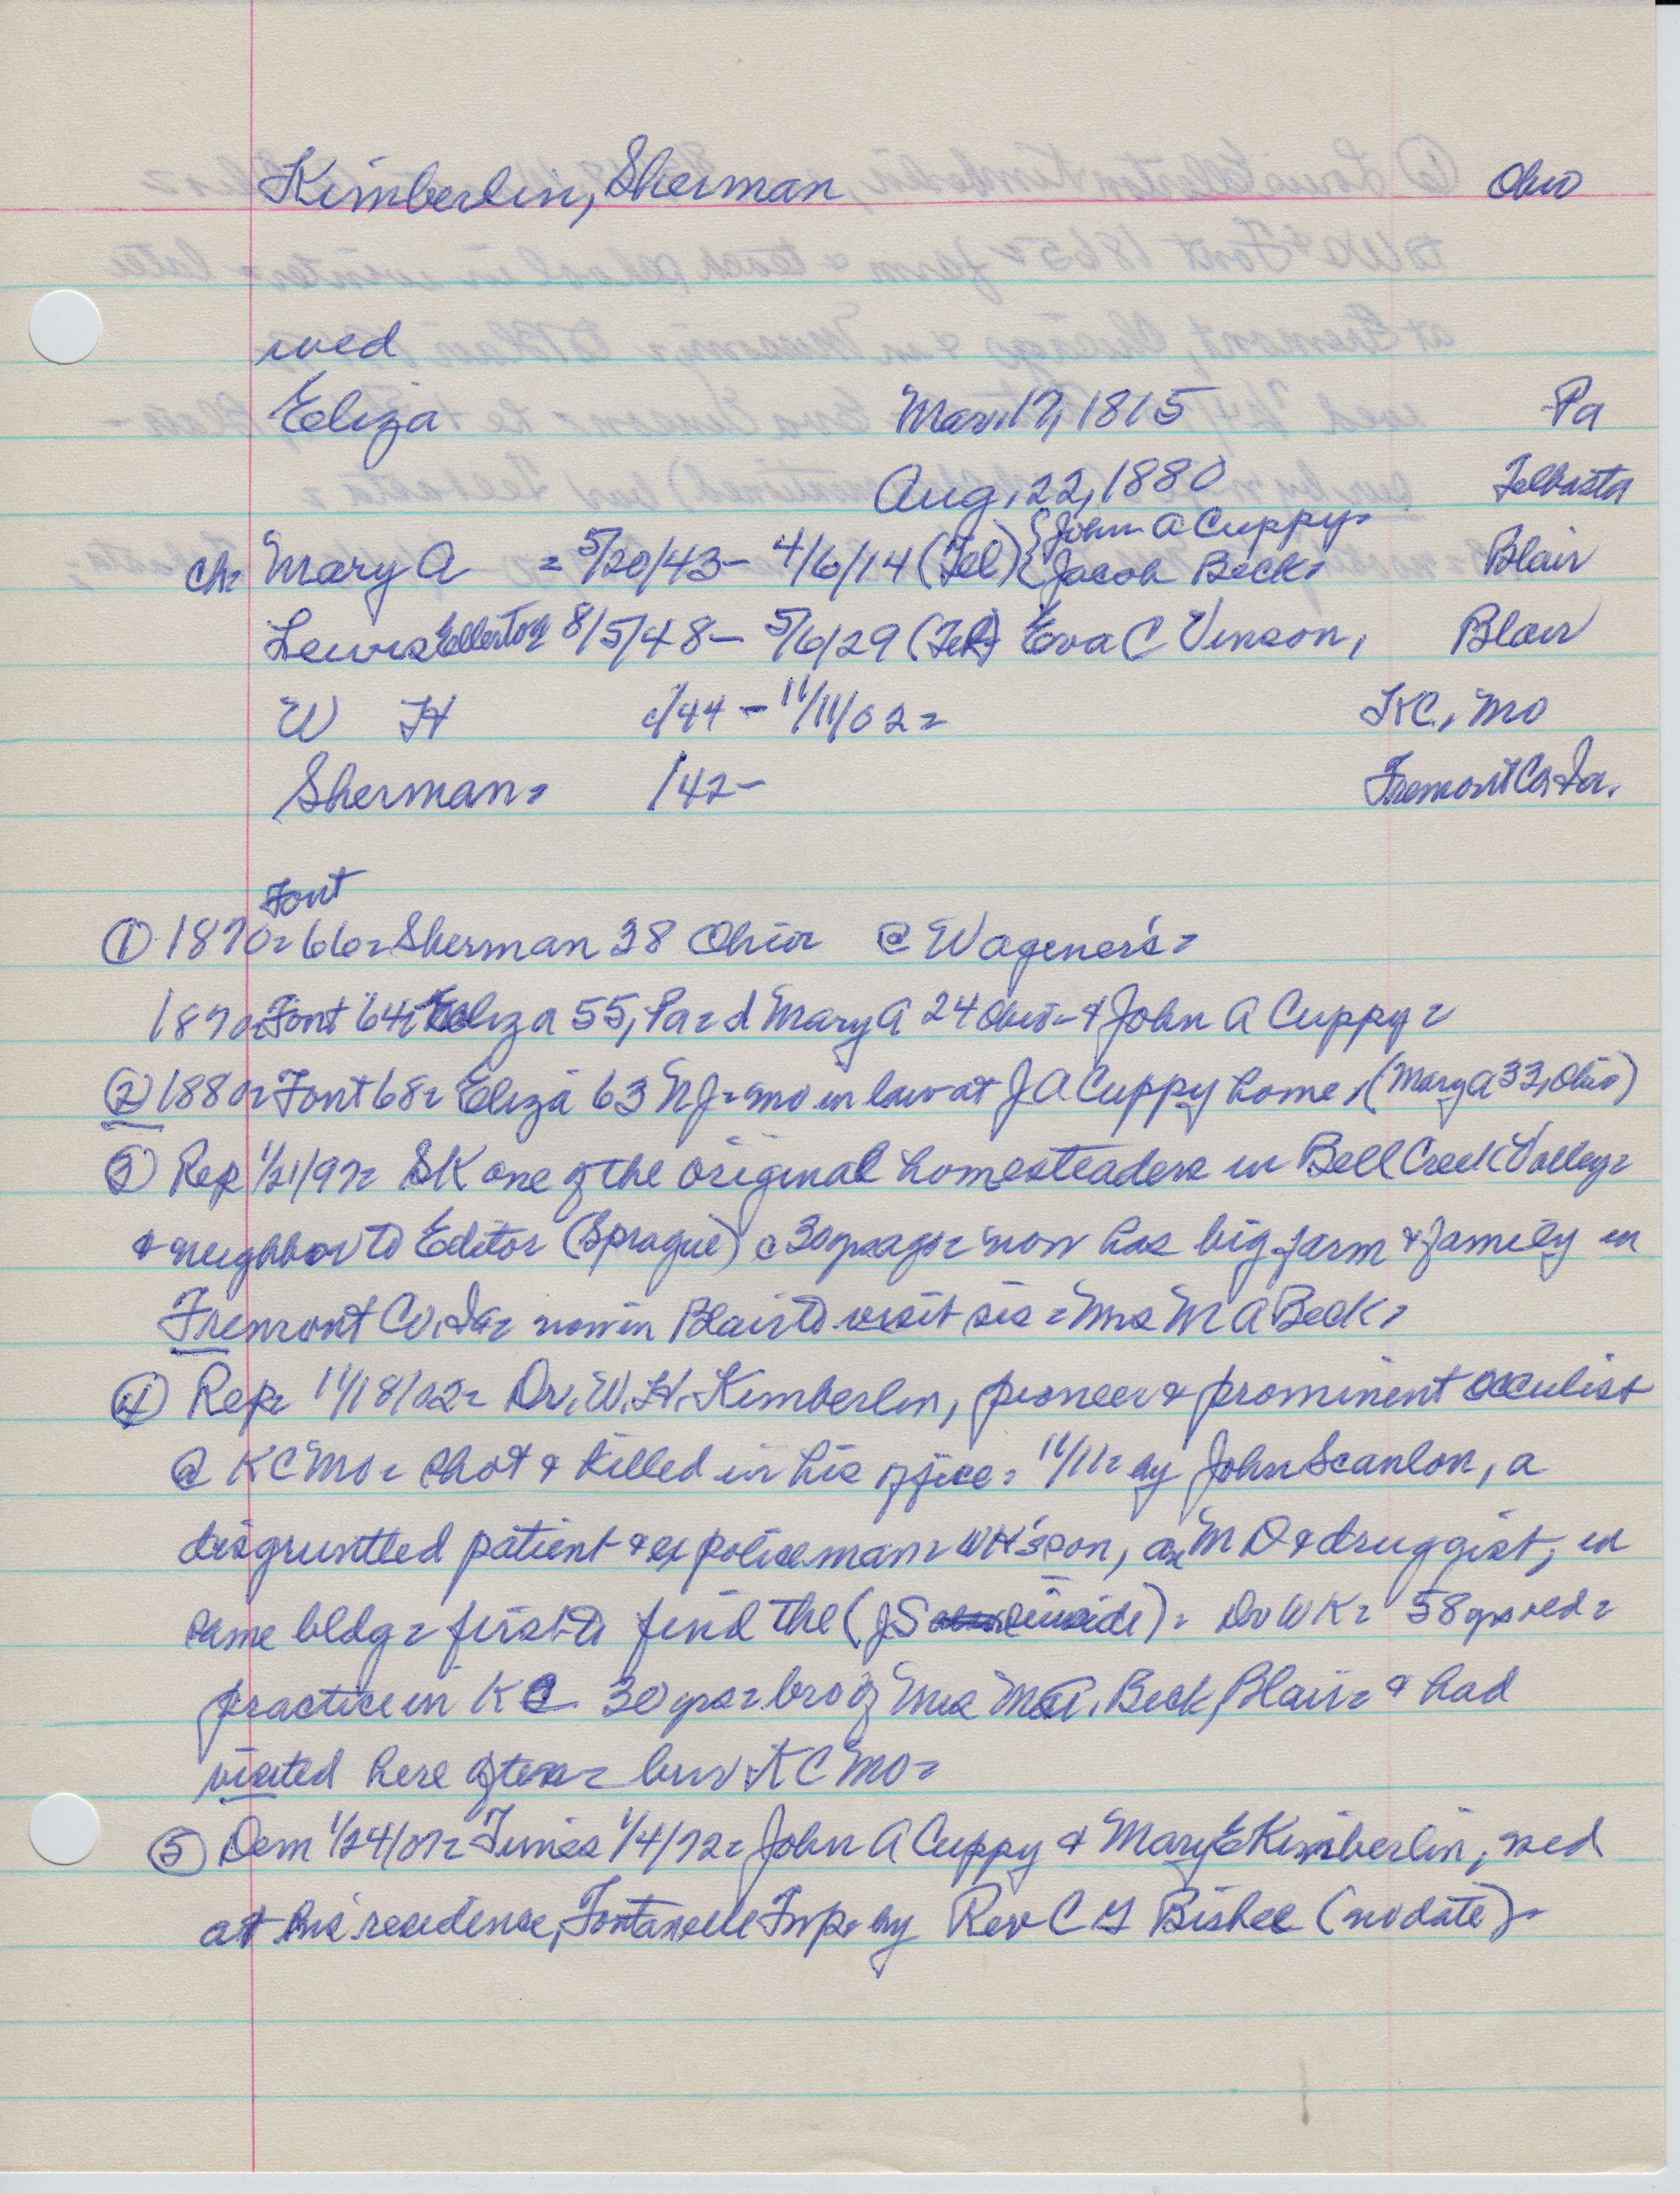 Kimberlin, Sherman Ohio
wed
Eliza Mar. 17, 1815 Pa
Aug. 22, 1880 Telbasta
ch= Mary A = 5/20/43- 4/6/14 (Tel) { John A Cuppy= { Jacob Beck= Blair
Lewis Ellerton 8/5/48- 5/6/29 (Tek) Eva C Vinson, Blair
W H c/44 - 11/11/02= KC, Mo
Sherman= /42- Fremont Co Ia.
Font
① 1870= 66= Sherman 38 Ohio @ Wagener's=
1870= Font 64= Eliza 55, Pa= d Mary A 24 Ohio- & John A Cuppy=
② 1880= Font 68= Eliza 63 NJ= mo in law at J A Cuppy home, (Mary A 33, Ohio)
③ Rep 1/21/97= SK one of the original homesteaders in Bell Creek Valley=
& neighbor to Editor (Sprague) c 30 yrs ago= now has big farm & family in
Fremont Co, Ia= now in Blair to visit sis= Mrs M A Beck=
④ Rep= 11/18/02= Dr. W. H. Kimberlin, pioneer & prominent occulist
@ KC Mo= shot & killed in his office= 11/11= by John Scanlon, a
disgruntled patient & ex policeman= WH's son, an M D & druggist, in
same bldg= first to find the (JS suicide)= Dr W K= 58 yrs old=
practice in KC 30 yrs= bro of Mrs Beck, Blair= & had
visited here often= bur KC Mo=
⑤ Dem 1/24/07= Times 1/4/72= John A Cuppy & Mary E Kimberlin, wed
at his residence, Fontanelle Twp= by Rev C G Bisbee (no date)=